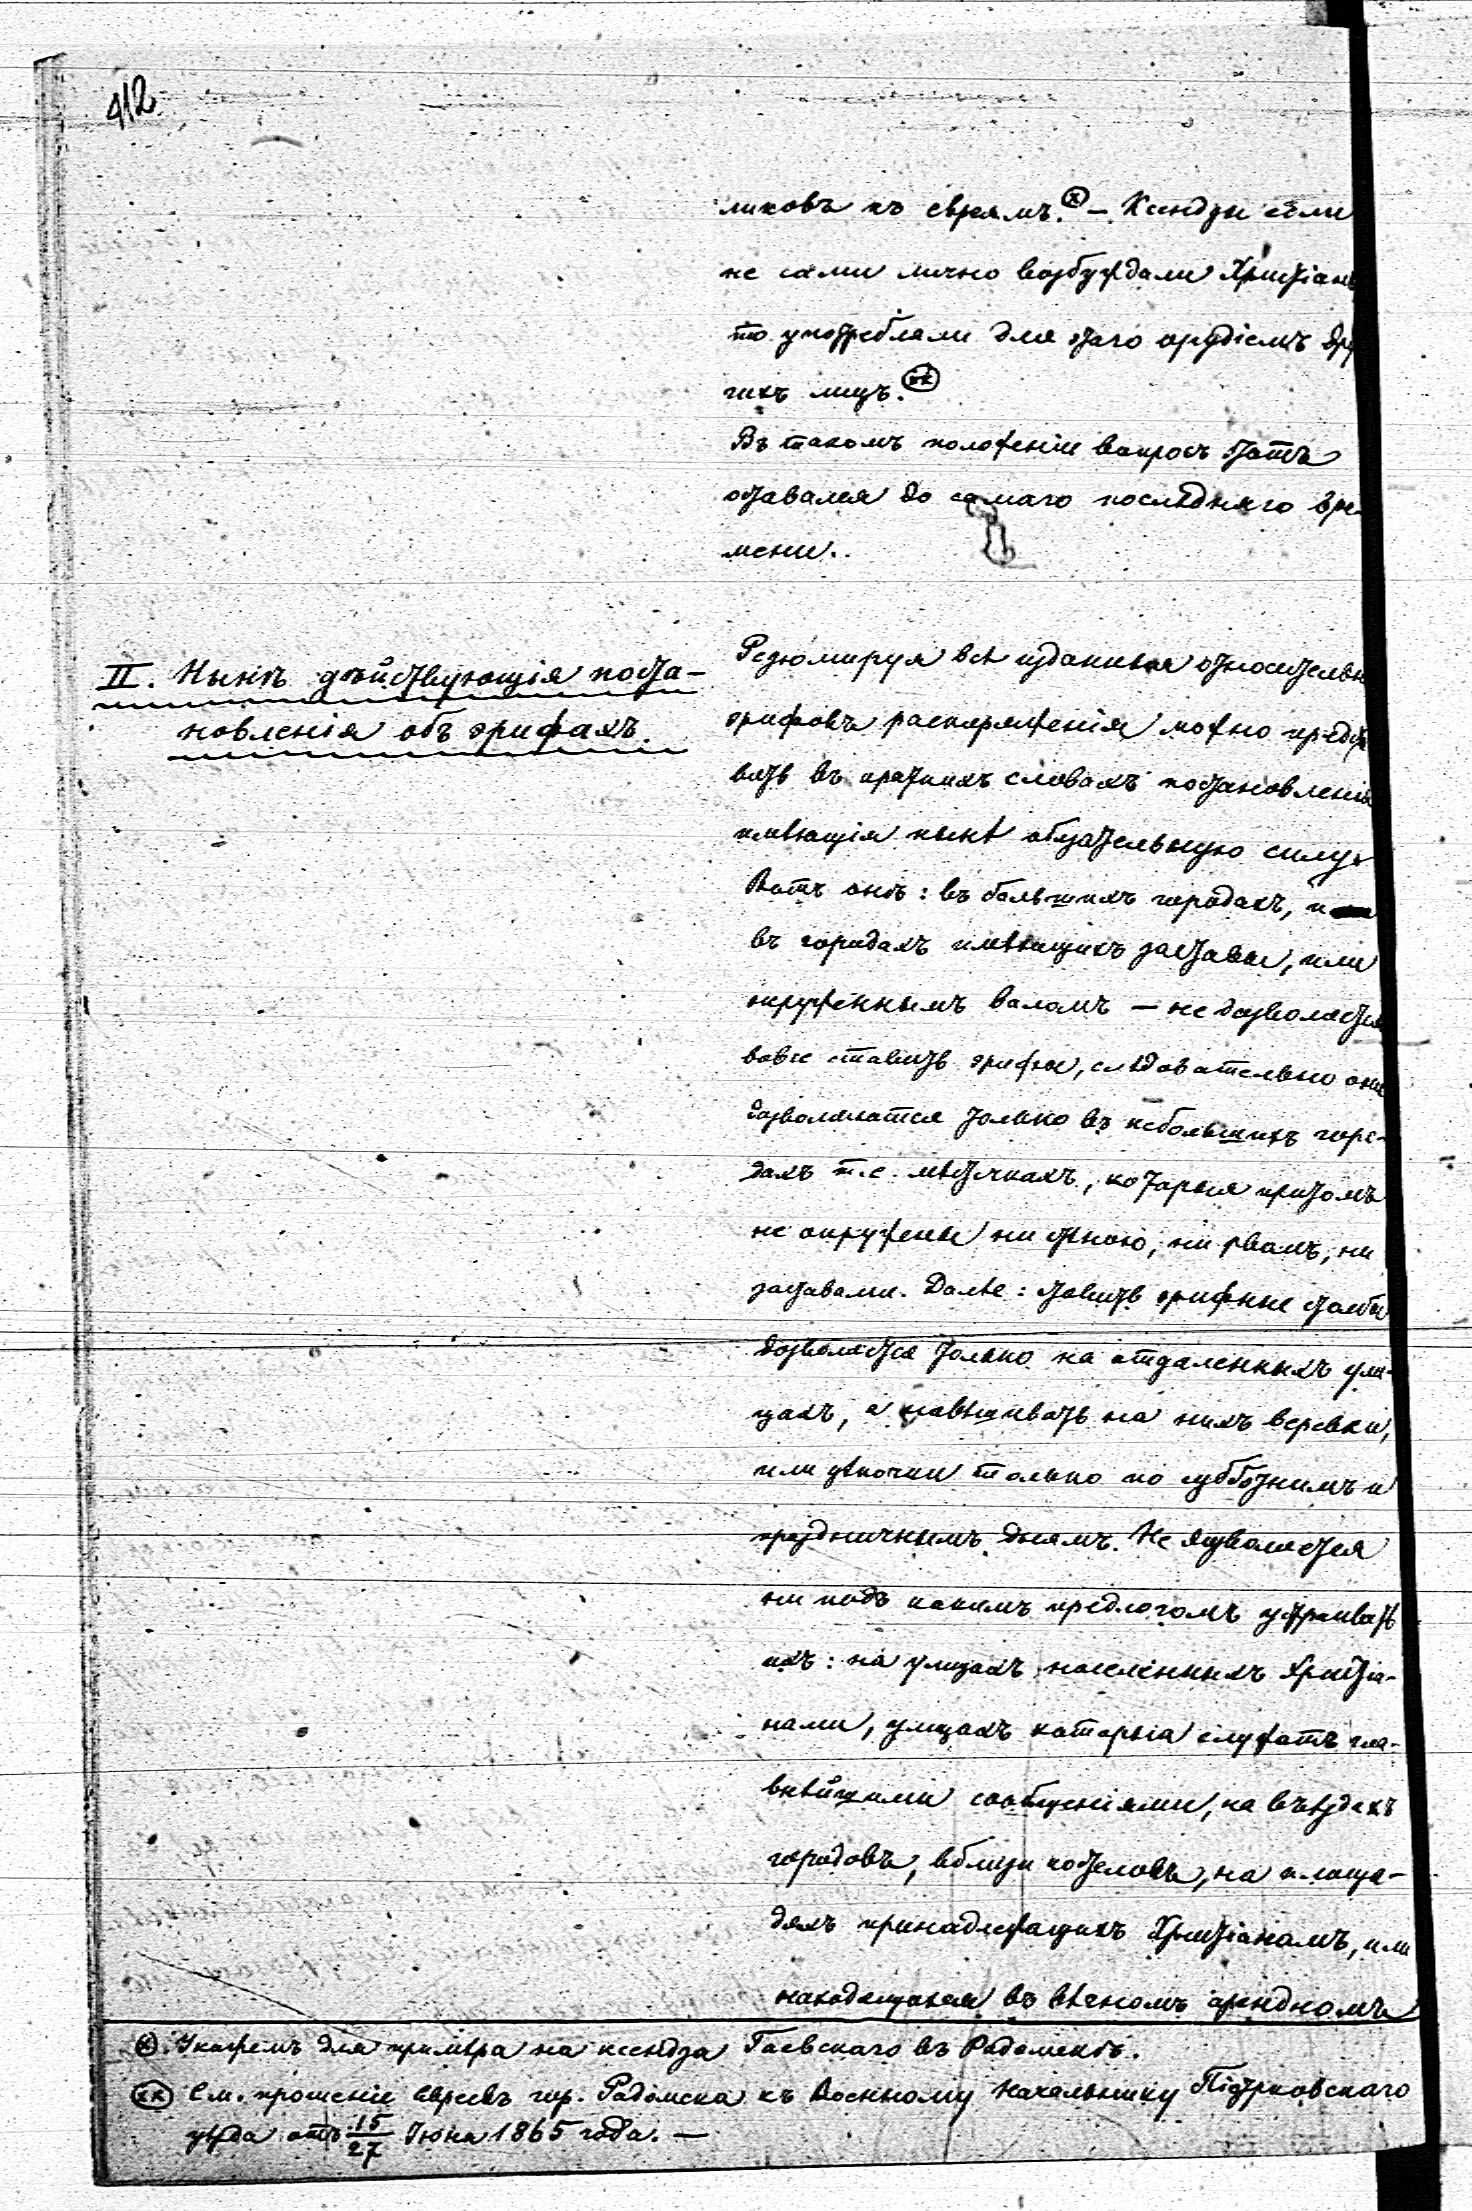 412
ликовъ къ евреямъ. (x) — Ксендзы если
не сами лично возбуждали Христіанъ
то употребляли для этаго орудіемъ дру
гихъ лицъ. (xx)
Въ такомъ положеніи вопросъ этотъ
оставался до самаго послѣдняго вре-
мени.
II. Нынѣ дѣйствующія поста-
новленія объ эрифахъ.
Резюмируя всѣ изданныя относительно
эрифовъ распоряженія можно предста
вить въ краткихъ словахъ постановленія
имѣющія нынѣ обязательную силу.
Вотъ онѣ: въ большихъ городахъ, и
въ городахъ имѣющихъ заставы, или
окруженнымъ валомъ — не дозволяется
вовсе ставить эрифы, слѣдовательно они
дозволяются только въ небольшихъ горо-
дахъ т.е. мѣстечкахъ, которыя притомъ
не окружены ни стѣною, ни рвомъ, ни
заставами. Далѣе: ставить эрифные столбы
дозволяется только на отдаленныхъ ули-
цахъ, а навѣшивать на нихъ веревки,
или цѣпочки только по субботнимъ и
праздничнымъ днямъ. Не дозволяется
ни подъ какимъ предлогомъ устраивать
ихъ: на улицахъ населенныхъ Христіа-
нами, улицахъ которыя служатъ гла-
внѣйшими сообщеніями, на въѣздахъ
городовъ, вблизи костеловъ, на площа-
дяхъ принадлежащихъ Христіанамъ, или
находящихся въ вѣчномъ арендномъ
(x) Укажемъ для примѣра на ксендза Гаевскаго въ Радомскѣ.
(xx) См. прошеніе евреевъ гор. Радомска къ Военному Начальнику Піотрковскаго
уѣзда отъ 15/27 Іюня 1865 года. —